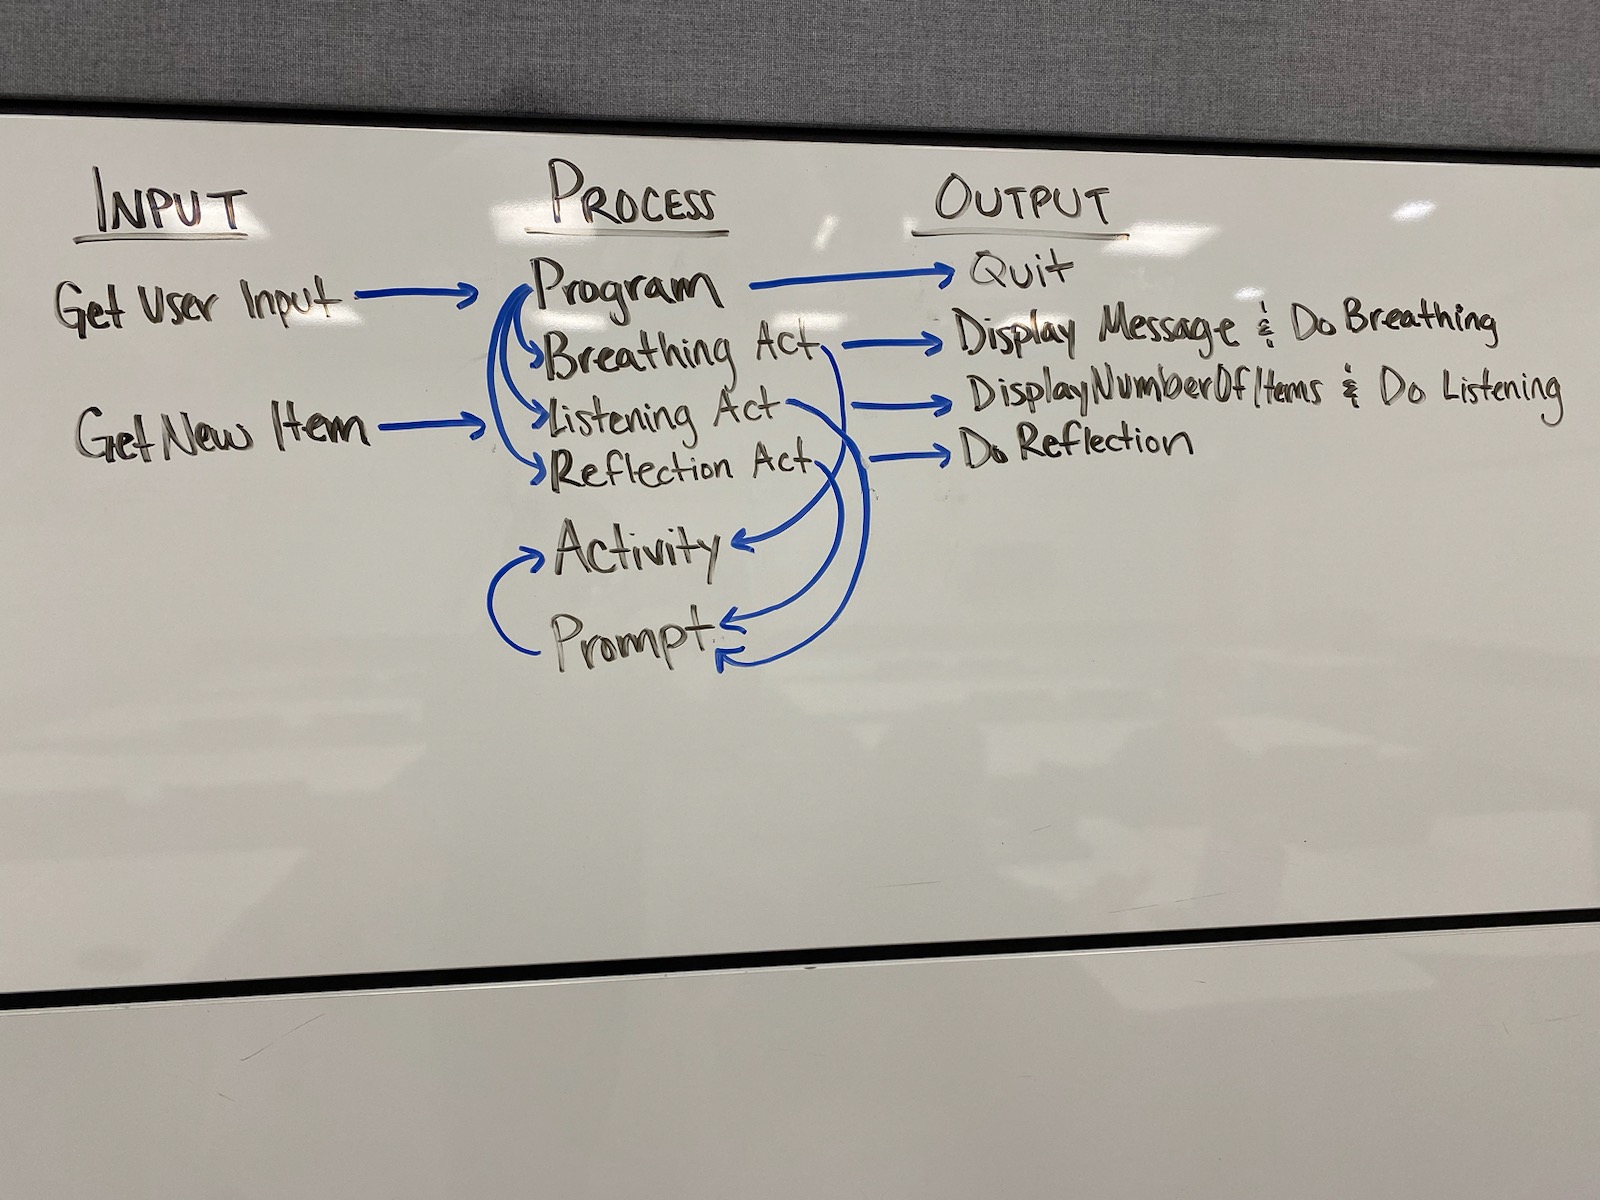 INPUT
Get User Input
Get New Item
PROCESS
Program
Breathing Act
Listening Act
Reflection Act
Activity
Prompt
OUTPUT
Quit
Display Message & Do Breathing
DisplayNumberOfItems & Do Listening
Do Reflection